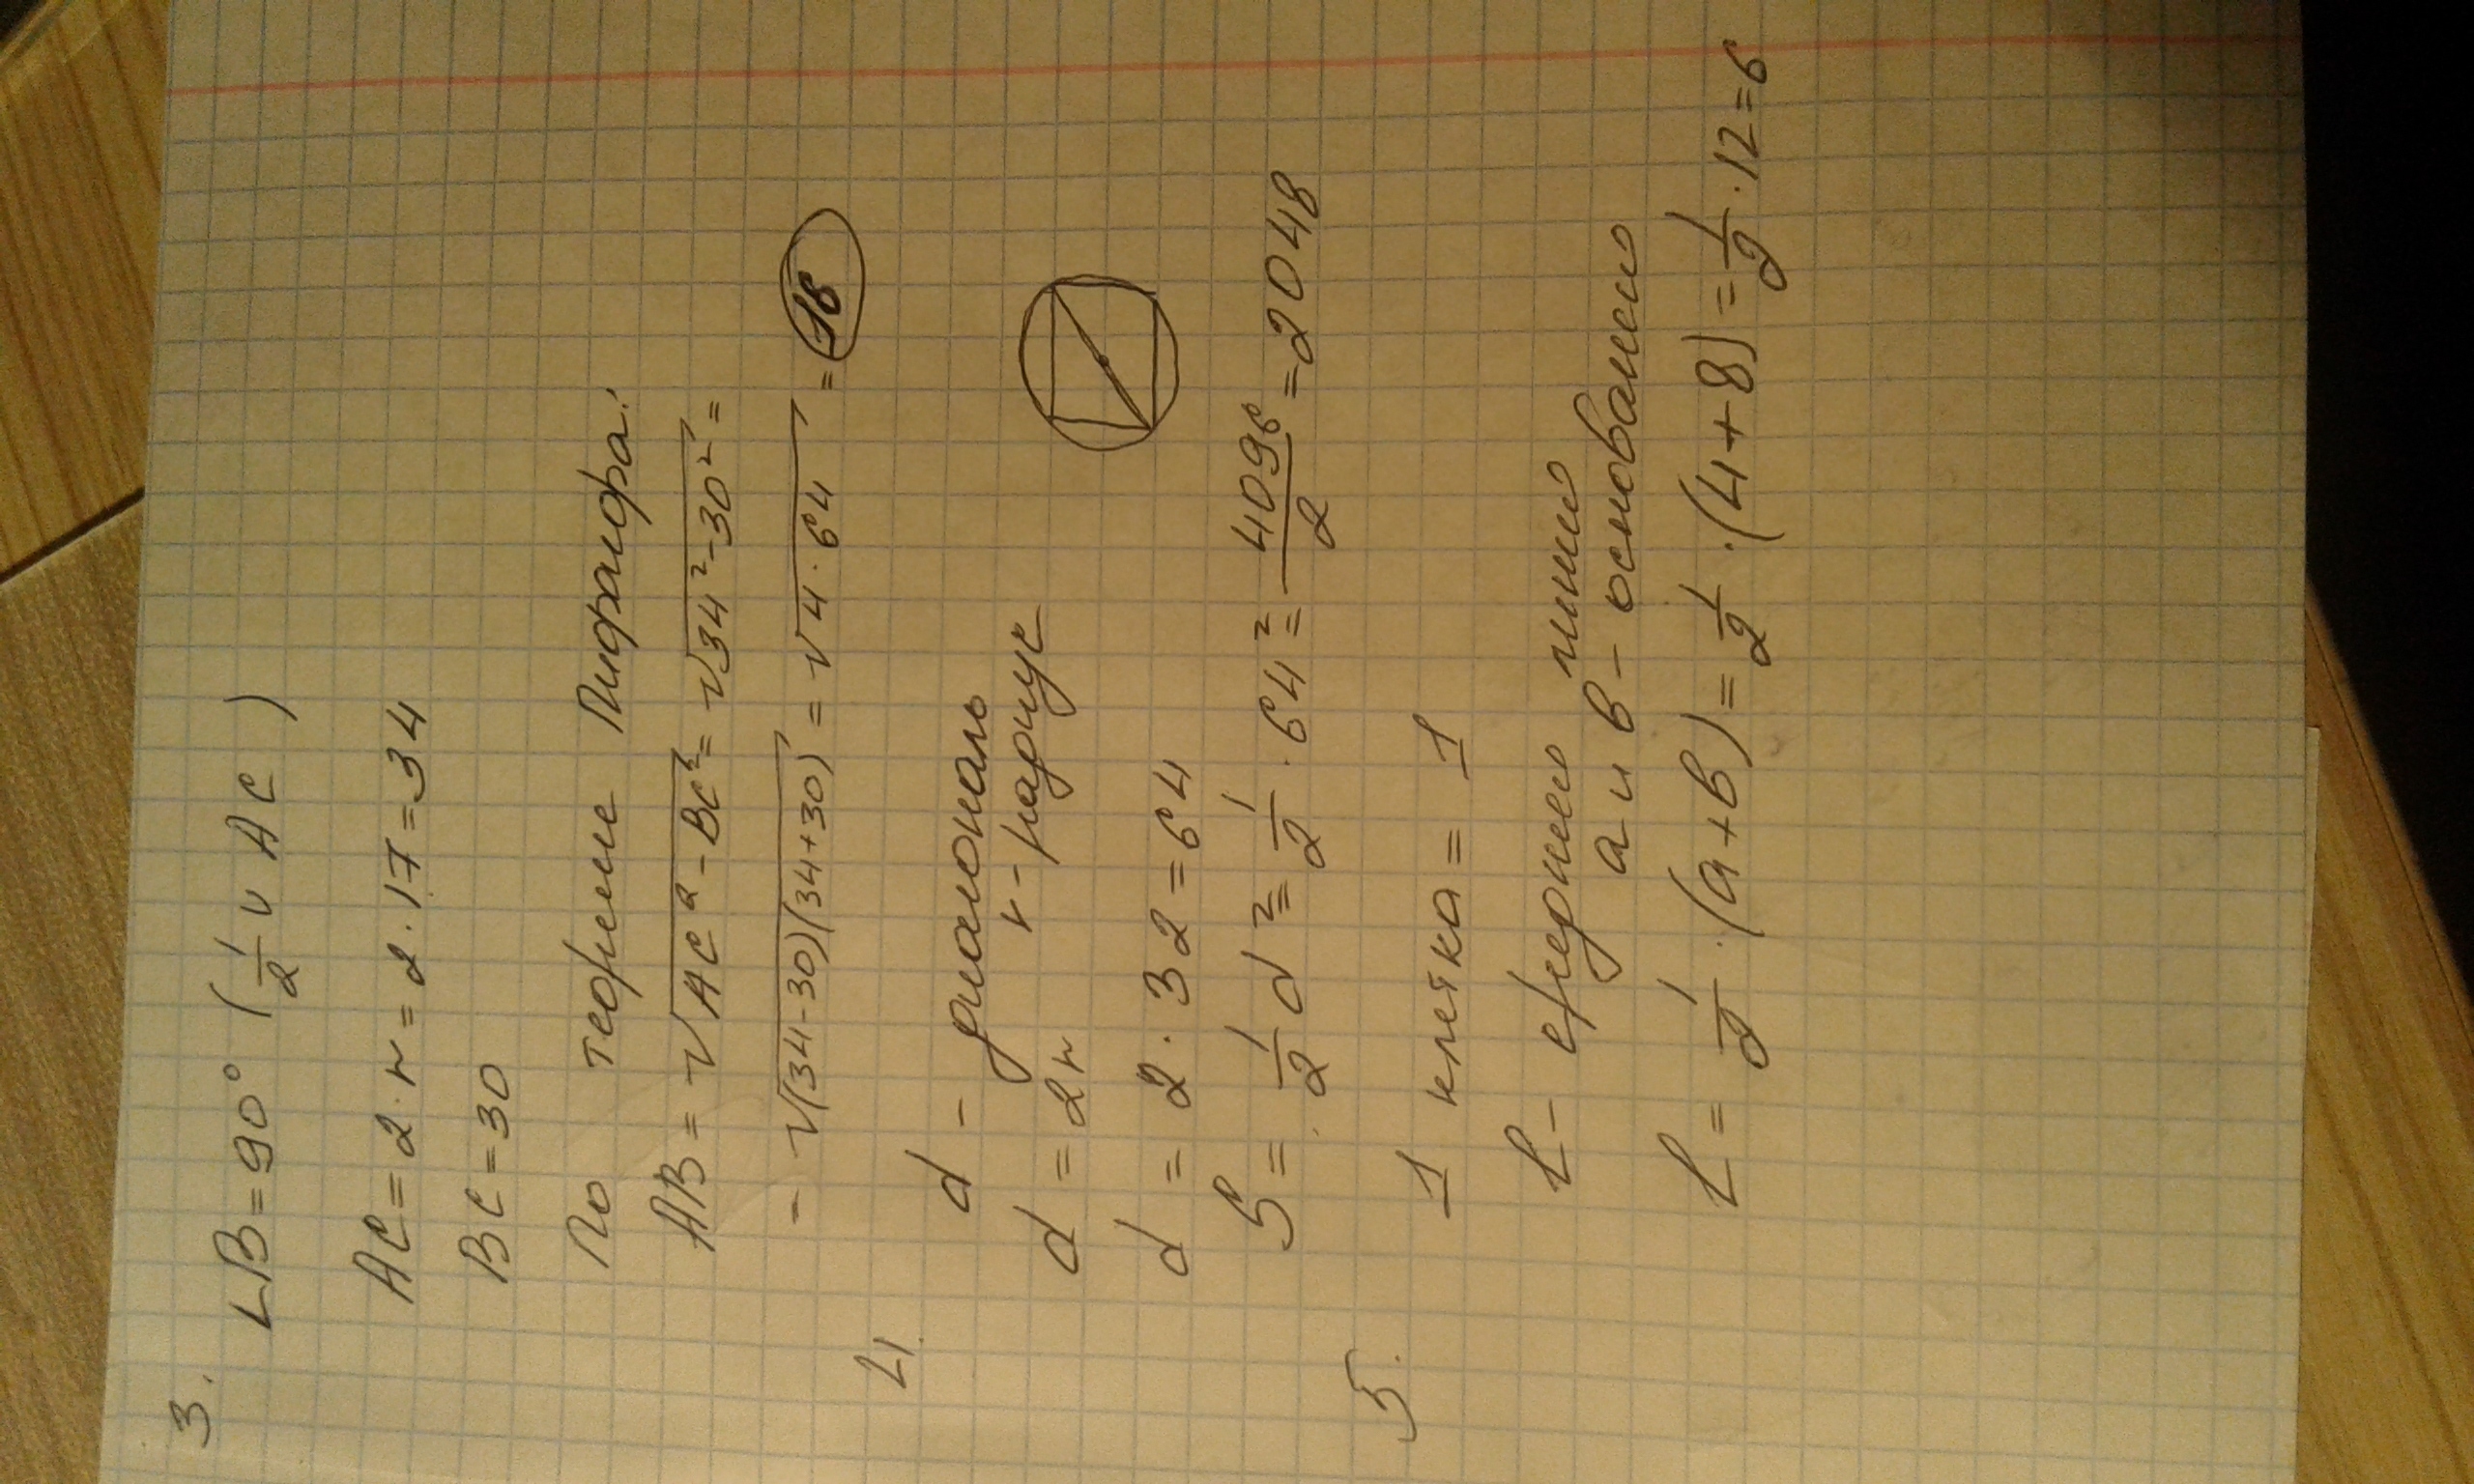 3.
∠B=90° (1/2 ∪ AC)
AC=2·r=2·17=34
BC=30
По теореме Пифагора:
AB=√AC²-BC²=√34²-30²=
-√(34-30)(34+30)=√4·64=16
4.
d - диагональ
d=2r r-радиус
d=2·32=64
S=1/2 d²=1/2·64²=4096/2=2048
5.
1 клетка=1
L- среднего линии
a и b - основание
L=1/2·(a+b)=1/2·(4+8)=1/2·12=6